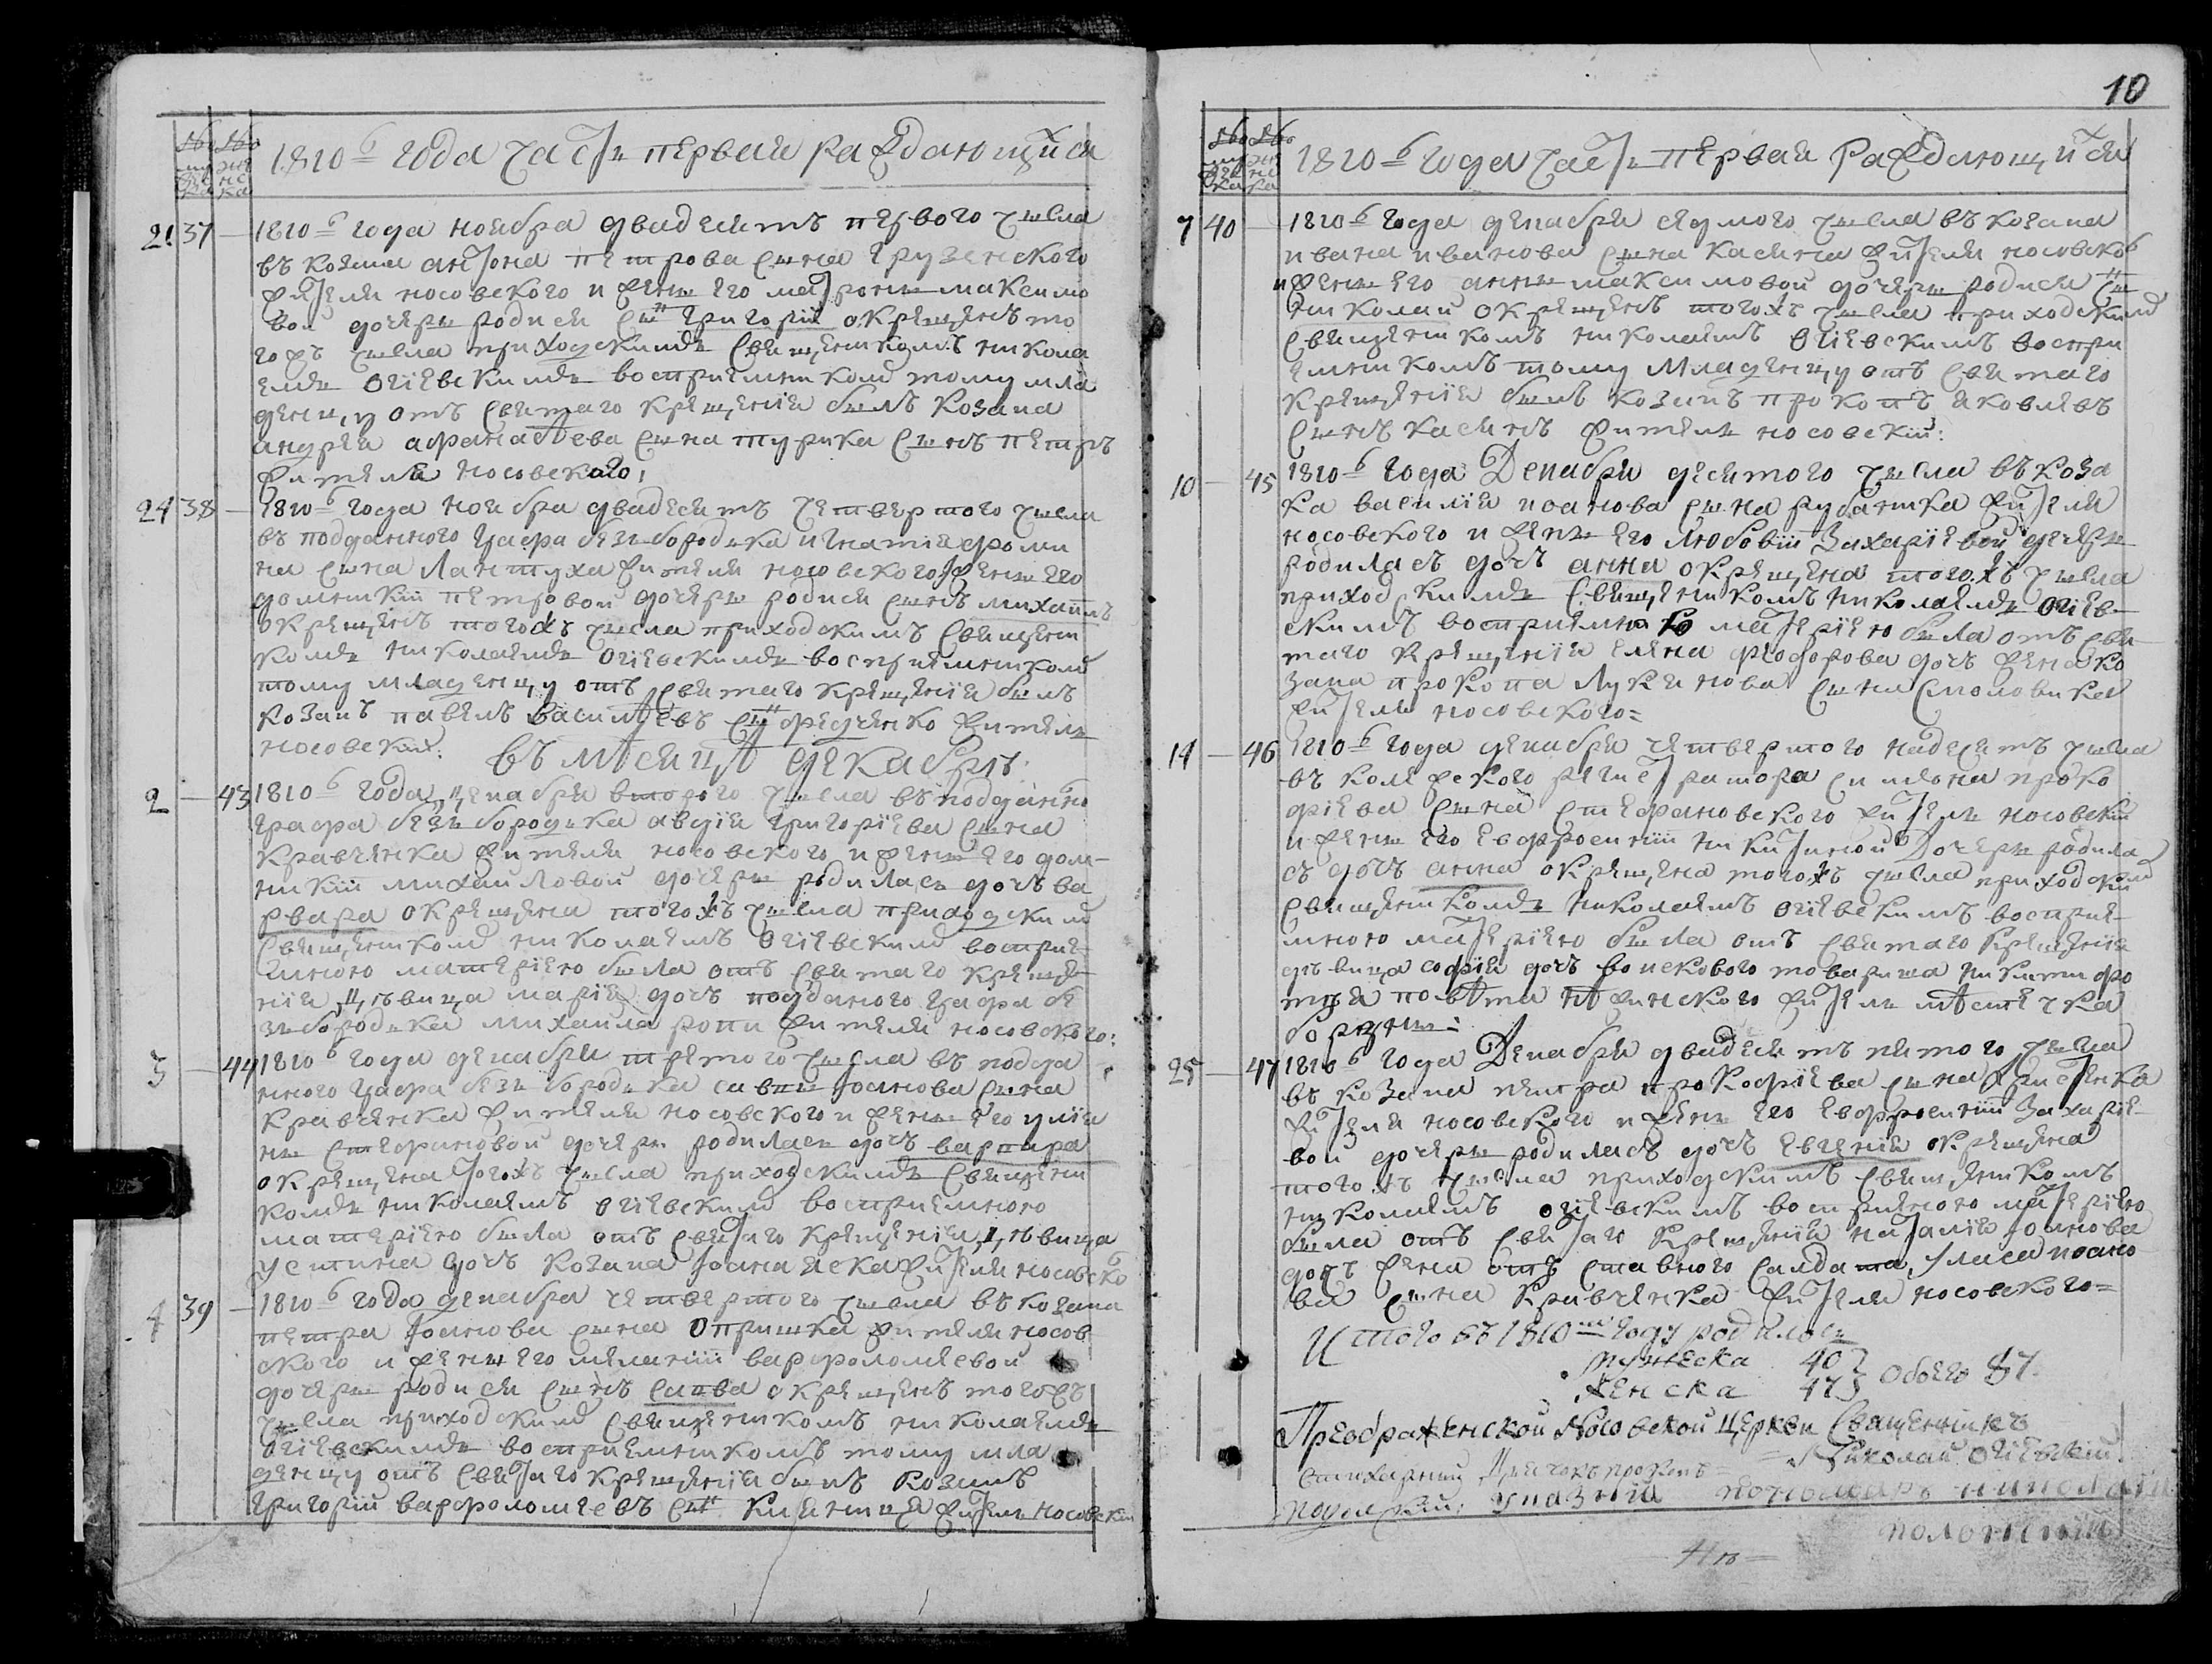 1810г года часть первая раждающийся
21 37 1810г года ноября двадесятъ первого числа
въ козака антона петрова сина грузенского
жителя носовского и жени его матрони максимо
вой дочери родися синъ григорий окрещенъ то
гожъ числа приходскимъ священикомъ никола
емъ огіевскимъ восприемникомъ тому мла
денцу отъ святаго крещенія билъ козака
андрея афанасѣева сина турика синъ петръ
жителя носовского:
24 38 1810г года ноября двадесятъ четвертого числа
въ подданного графа безъбородька игнатія фоми
на сина Лантуха жителя носовского, жени его
домникіи петровой дочери родися синъ михаилъ
окрещенъ тогожъ числа приходскимъ священи
комъ николаемъ огіевскимъ восприемникомъ
тому младенцу отъ святаго крещенія билъ
козакъ павелъ василѣевъ синъ федченко житель
носовский:
въ мѣсяцѣ декабрѣ
2 43 1810г года декабря второго числа въ подданно
графа безъбородька авдія григоріева сина
кравченка жителя носовского и жени его дом-
никіи михайловой дочери родилась дочъ ва
рвара окрещена тогожъ числа приходскимъ
священикомъ николаемъ огіевскимъ восприе-
мною матерію била отъ святаго креще
нія, дѣвица марія дочъ подданого графа бе
зъбородька михаила жителя носовского:
3 44 1810г года декабря третого числа въ подда
нного графа безъбородька савви іоанова сина
кравченка жителя носовского и жени его улія
ни стефановой дочери родилась дочъ варвара
окрещена тогожъ числа приходскимъ священи
комъ николаемъ огіевскимъ восприемною
матерію била отъ святаго крещенія, дѣвица
устина дочъ козака іоана жителя носовско
4 39 1810г года декабря четвертого числа въ козака
петра іоанова сина Опришка жителя носов
ского и жени его меланіи варфоломеевой
дочери родися синъ савва окрещенъ тогожъ
числа приходскимъ священикомъ николаемъ
огіевскимъ восприемникомъ тому мла
денцу отъ святаго крещенія билъ козакъ
григорій варфоломеевъ синъ житель носовский
10
1810г года часть первая Раждающийся
7 40 1810г года декабря седмого числа въ козака
ивана иванова сина касяна жителя носовско
и жени его анни максимовой дочери родися син
николай окрещенъ тогожъ числа приходскимъ
священикомъ николаемъ огіевскимъ воспри
емникомъ тому младенцу отъ святаго
крещенія билъ козакъ прокопъ яковлевъ
синъ касянъ житель носовский:
10 45 1810г года Декабря десятого числа въ коза
ка василія иоанова сина рубаника жителя
носовского и жени его любовіи Захаріевой дочери
родиласъ дочъ анна окрещена тогожъ числа
приходскимъ священикомъ николаемъ огіев-
скимъ восприемною матерією била отъ свя
таго крещенія елена феодорова дочъ жена ко
зака прокопа лукянова сина смоловика
жителя носовского=
14 46 1810г года декабря четвертого надесятъ числа
въ колежского регистратора симеона проко
фіева сина стефановского житель носовский
и жени его евфросиніи никитиной Дочери родила
съ дочъ анна окрещена тогожъ числа приходским
священикомъ николаемъ огіевскимъ восприе-
мною матерію била отъ святаго крещенія
дѣвица софія дочъ войскового товариша
повѣта нѣжинского житель мѣстечка
25 47 1810г года Декабря двадесятъ пятого числа
въ козака петра прокофіева сина христенка
жителя носовского и жени его евфросиніи Захаріе-
вой дочери родиласъ дочъ евгенія окрещена
тогожъ числа приходскимъ священикомъ
николаемъ огіевскимъ восприемною матерію
била отъ святаго крещенія наталія іоанова
дочъ жена отъ ставного салдата, власа иоано
ва сина кравченка жителя носовского=
И того въ 1810мъ году родилось
мужеска 40
женска 47 } Обоего 87.
Преображенской Носовской Церкви Священникъ
Николай Огіевский.
Стихарний прокопъ
указний пономаръ николай